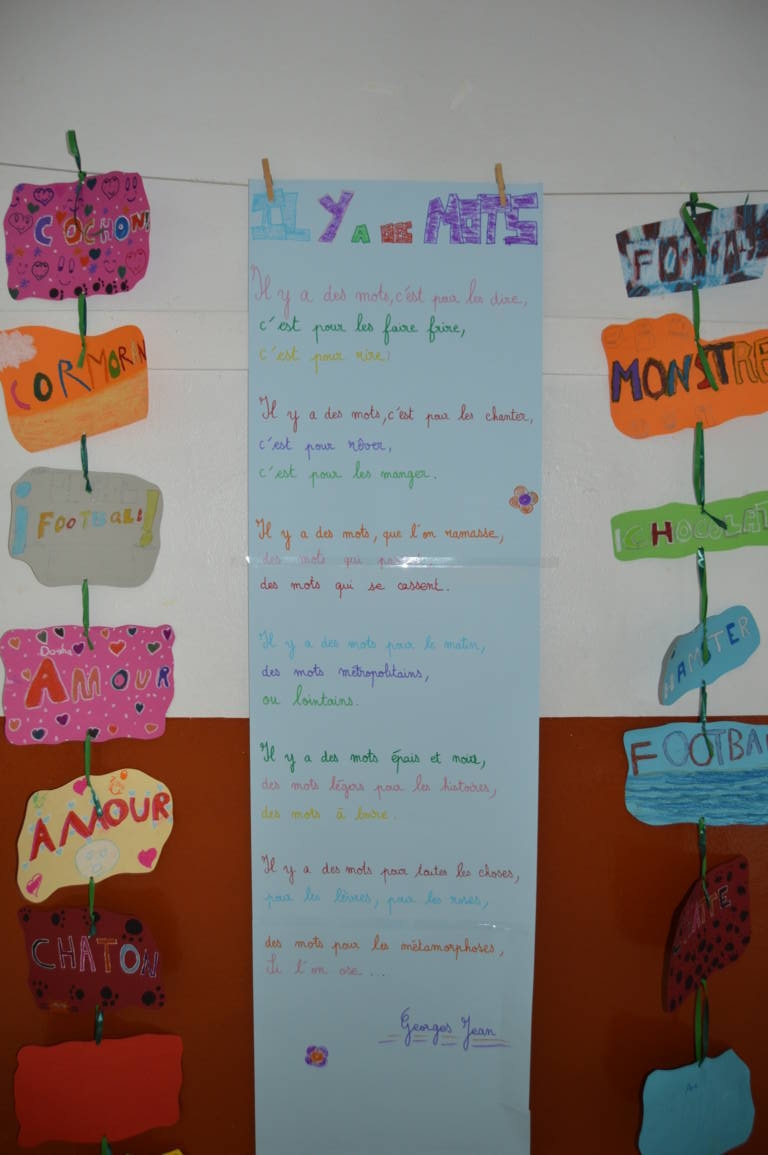 COCHON!
CORMORAN
¡FOOTBALL!
Dasha
AMOUR
AMOUR
CHATON
IL Y A DES MOTS
Il y a des mots, c'est pour les dire,
c'est pour les faire frire,
c'est pour rire!
Il y a des mots, c'est pour les chanter,
c'est pour rêver,
c'est pour les manger.
Il y a des mots, que l'on ramasse,
des mots qui
des mots qui se cassent.
Il y a des mots pour le matin,
des mots métropolitains,
ou lointains.
Il y a des mots épais et noirs,
des mots légers pour les histoires,
des mots à boire.
Il y a des mots pour toutes les choses,
pour les lèvres, pour les roses,
des mots pour les métamorphoses,
Si l'on ose ...
Georges Jean
MONSTRE
CHOCOLAT
HAMTER
FOOTBA